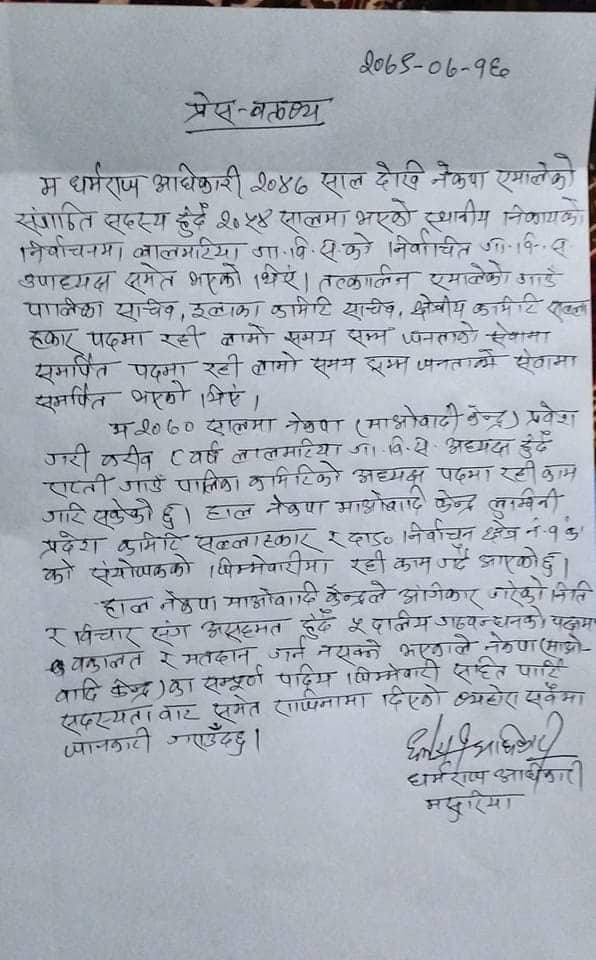 २०७९-०७-१६
प्रेस-वक्तव्य
म धर्मराज अधिकारी २०४७ साल देखि नेकपा एमालेको
संगठित सदस्य हुँदै २०५४ सालमा भएको स्थानीय निकायको
निर्वाचनमा लालमटिया गा.वि.स.को निर्वाचित गा.वि.स.
उपाध्यक्ष समेत भएको थिएं। तत्कालिन एमालेको गाउँ
पालिका सचिव, इलाका कमिटि सचिव, क्षेत्रीय कमिटि सल्ला
हकार पदमा रही लामो समय सम्म जनताको सेवामा
समर्पित पदमा रही लामो समय सम्म जनताको सेवामा
समर्पित भएको थिएं।
म २०७० सालमा नेकपा (माओवादी केन्द्र) प्रवेश
गरी करीव ८ वर्ष लालमटिया गा.वि.स. अध्यक्ष हुँदै
राप्ती गाउँ पालिका कमिटिको अध्यक्ष पदमा रही काम
गरि सकेको छु। हाल नेकपा माओवादि केन्द्र लुम्बिनी
प्रदेश कमिटि सल्लाहकार र दाङ निर्वाचन क्षेत्र नं-१ क
को संयोजकको जिम्मेवारीमा रही काम गर्दै आएकोछु।
हाल नेकपा माओवादि केन्द्रले अंगिकार गरेको निति
र विचार संग असहमत हुँदै ५ दलिय गठवन्धनको पक्षमा
वकालत र मतदान गर्न नसक्ने भएकाले नेकपा (माओ-
वादि केन्द्र) का सम्पूर्ण पदिय जिम्मेवारी सहित पार्टि
सदस्यता वाट समेत राजिनामा दिएको व्यहोरा सवैमा
जानकारी गराउँदछु।
धर्मराज अधिकारी
मसुरिया